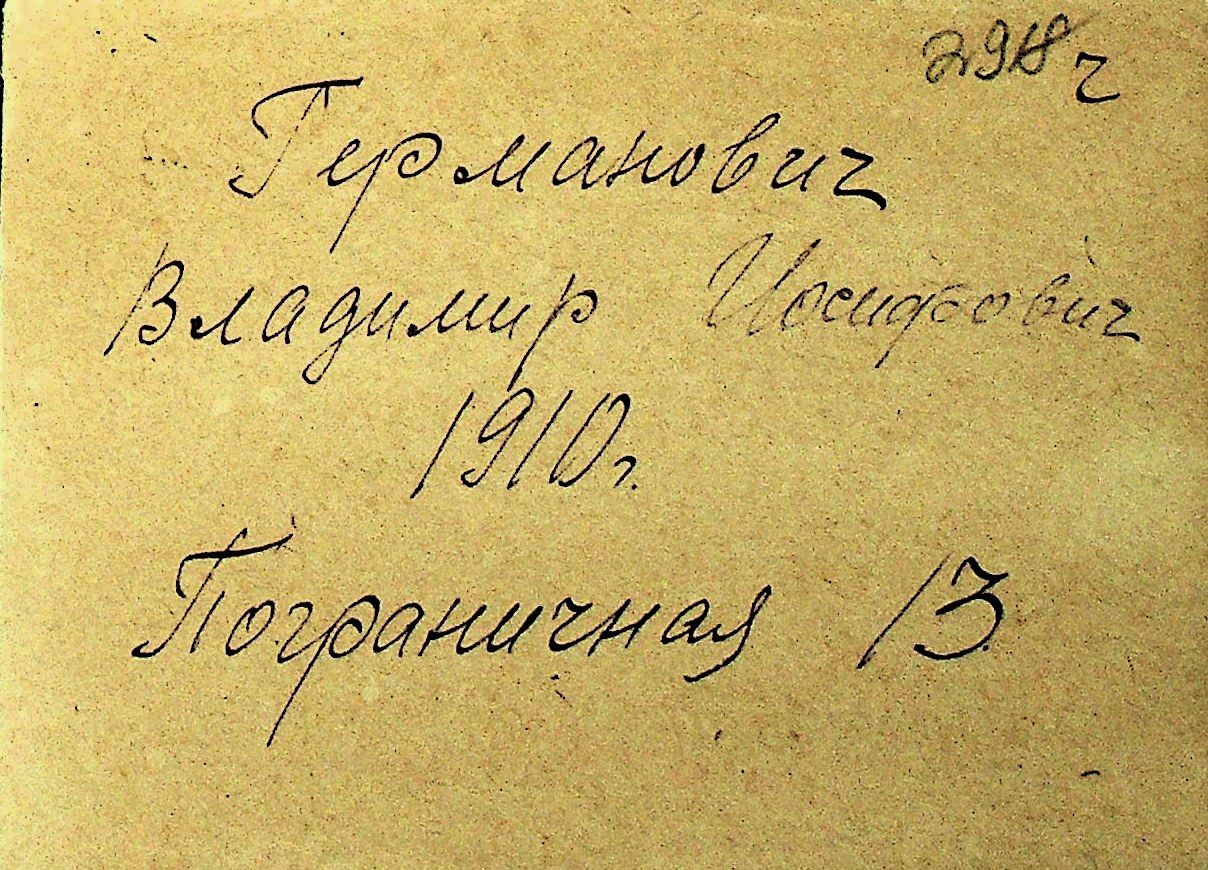 Германович
Владимир Иосифович
1910г.
Пограничная 13